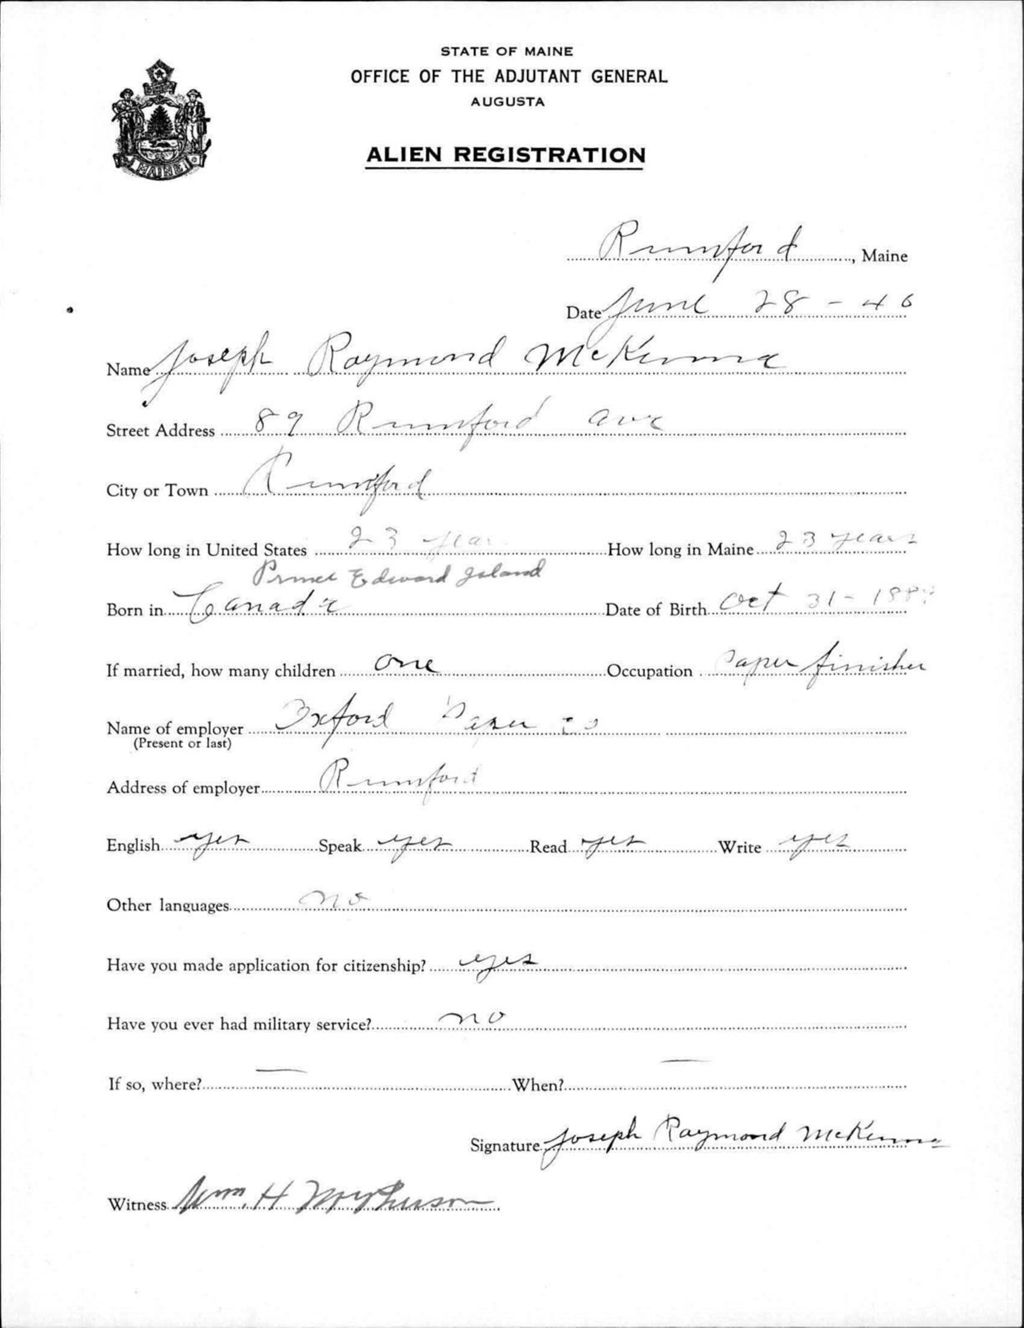 STATE OF MAINE
OFFICE OF THE ADJUTANT GENERAL
AUGUSTA
ALIEN REGISTRATION
MAINE
Rumford, Maine
Date June 28 - 40
Name Joseph Raymond McKenna
Street Address 89 Rumford Ave
City or Town Rumford
How long in United States 23 years How long in Maine 23 years
Prince Edward Island
Born in Canada Date of Birth Oct 31 -
If married, how many children one Occupation Paper finisher
Name of employer Oxford Paper Co
(Present or last)
Address of employer Rumford
English yes Speak yes Read yes Write yes
Other languages no
Have you made application for citizenship? yes
Have you ever had military service? no
If so, where? — When? —
Signature Joseph Raymond McKenna
Witness Wm. H